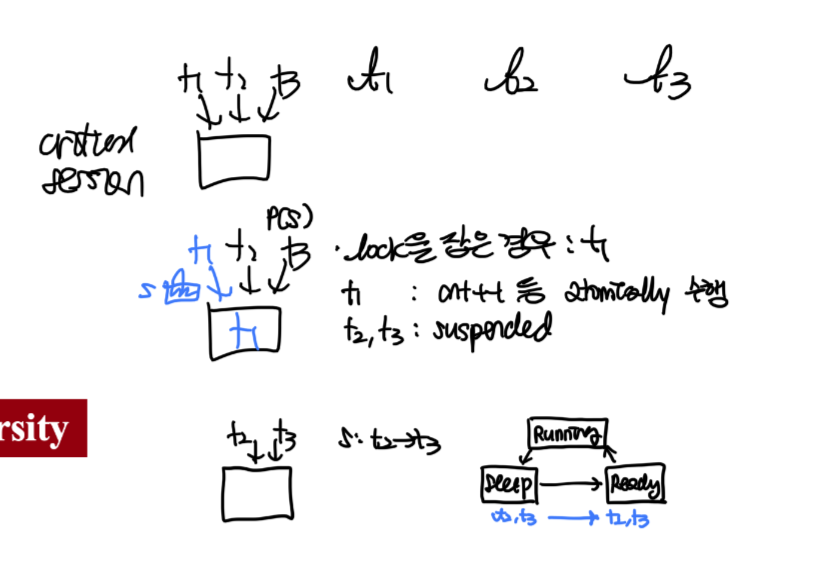 t1 t2 t3 t1 t2 t3
critical
session
P(S)
t1 t2 t3 · lock을 잡은 경우 : t1
S t1 t1 : cnt++ 등 atomically 수행
t2, t3 : suspended
rsity
t2 t3 S: t2→t3 Running
Sleep Ready
t2,t3 → t2,t3